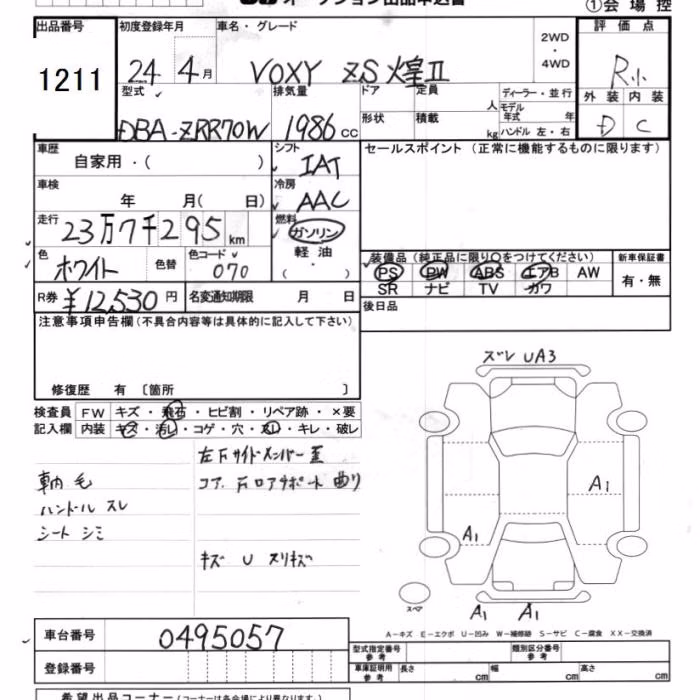 オークション出品申込書
①会場控
出品番号 1211
初度登録年月 24年 4月
車名・グレード VOXY ZS 煌Ⅱ
2WD・4WD
評価点 R小
外装 内装
D C
型式 DBA-ZRR70W
排気量 1986 cc
ドア 形状
定員 人
積載 kg
ディーラー・並行
モデル年式 年
ハンドル 左・右
車歴 自家用・( )
シフト IAT
セールスポイント(正常に機能するものに限ります)
車検 年 月( 日)
冷房 AAC
走行 23万7千295 km
燃料 ガソリン 軽油 ( ・ )
色 ホワイト 色替
色コード 070
装備品(純正品に限り○をつけてください)
新車保証書
PS PW ABS エアB AW
SR ナビ TV カワ
有・無
R券 ¥12,530 円
名変通知期限 月 日
後日品
注意事項申告欄(不具合内容等は具体的に記入して下さい)
修復歴 有 〔箇所 〕
検査員記入欄
FW キズ・飛石・ヒビ割・リペア跡・×要
内装 キズ・汚レ・コゲ・穴・スレ・キレ・破レ
車内 毛
ハンドル スレ
シート シミ
左F サイドメンバー 歪
コアサポート 曲り
キズ U スリキズ
ズレ UA3
A1
A1
A1 A1
スペア
A-キズ E-エクボ U-凹み W-補修跡 S-サビ C-腐食 XX-交換済
車台番号 0495057
登録番号
型式指定番号 参考
類別区分番号 参考
車庫証明用 参考 長さ cm 幅 cm 高さ cm
希望出品コーナー(コーナーは各会場により異なります。)